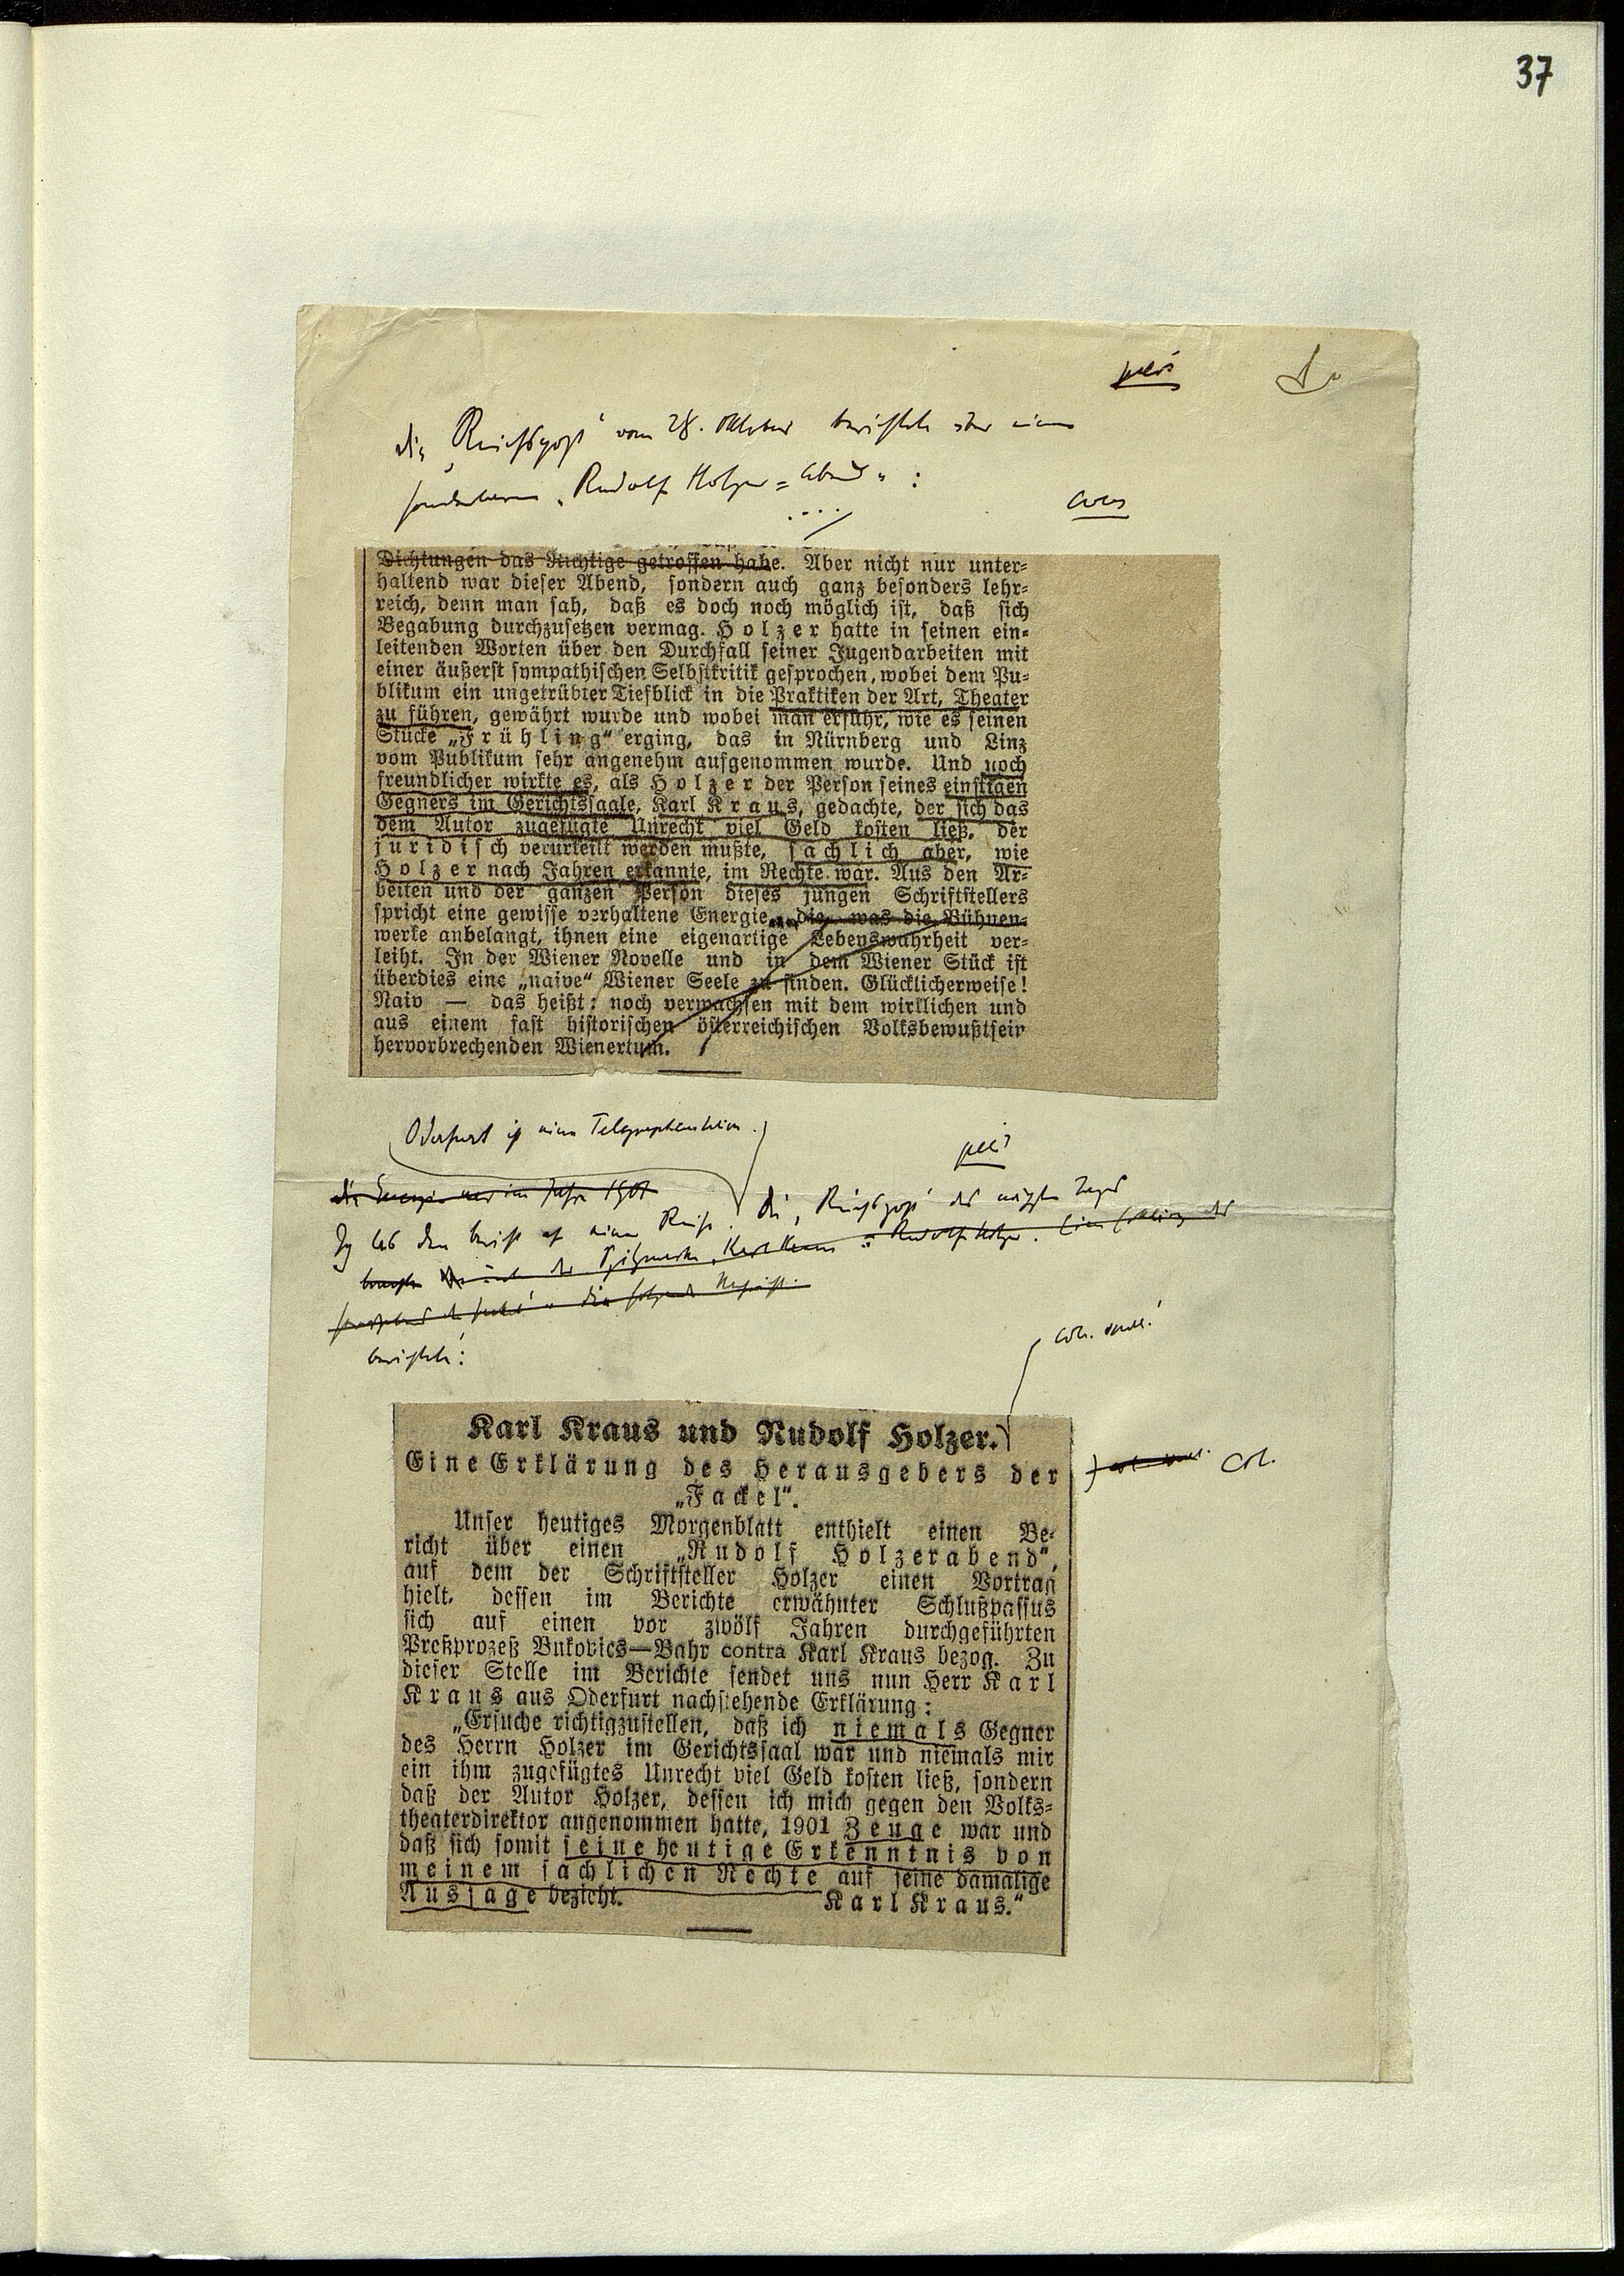 37
die „Reichspost“ vom 28. Oktober berichtete über einen
sonderbaren „Rudolf Holzer=Abend“:
....
Dichtungen das Richtige getroffen habe. Aber nicht nur unter=
haltend war dieser Abend, sondern auch ganz besonders lehr=
reich, denn man sah, daß es doch noch möglich ist, daß sich
Begabung durchzusetzen vermag. Holzer hatte in seinen ein=
leitenden Worten über den Durchfall seiner Jugendarbeiten mit
einer äußerst sympathischen Selbstkritik gesprochen, wobei dem Pu=
blikum ein ungetrübter Tiefblick in die Praktiken der Art, Theater
zu führen, gewährt wurde und wobei man erfuhr, wie es seinen
Stücke „Frühling“ erging, das in Nürnberg und Linz
vom Publikum sehr angenehm aufgenommen wurde. Und noch
freundlicher wirkte es, als Holzer der Person seines einstigen
Gegners im Gerichtssaale, Karl Kraus, gedachte, der sich das
dem Autor zugefügte Unrecht viel Geld kosten ließ, der
juridisch verurteilt werden mußte, sachlich aber, wie
Holzer nach Jahren erkannte, im Rechte war. Aus den Ar=
beiten und der ganzen Person dieses jungen Schriftstellers
spricht eine gewisse verhaltene Energie, die, was die Bühnen=
werke anbelangt, ihnen eine eigenartige Lebenswahrheit ver=
leiht. In der Wiener Novelle und in dem Wiener Stück ist
überdies eine „naive“ Wiener Seele zu finden. Glücklicherweise!
Naiv — das heißt: noch verwachsen mit dem wirklichen und
aus einem fast historischen österreichischen Volksbewußtsein
hervorbrechenden Wienertum.
Oderfurt ist eine Telegraphenstation.
im Jahre 1901
Ich las den Bericht auf einer Reise. Die „Reichspost“ des nächsten Tages
Karl Kraus Rudolf Holzer.
berichtete:
Karl Kraus und Rudolf Holzer.
Eine Erklärung des Herausgebers der
„Fackel“.
Unser heutiges Morgenblatt enthielt einen Be=
richt über einen „Rudolf Holzerabend“,
auf dem der Schriftsteller Holzer einen Vortrag
hielt, dessen im Berichte erwähnter Schlußpassus
sich auf einen vor zwölf Jahren durchgeführten
Preßprozeß Bukovics—Bahr contra Karl Kraus bezog. Zu
dieser Stelle im Berichte sendet uns nun Herr Karl
Kraus aus Oderfurt nachstehende Erklärung:
„Ersuche richtigzustellen, daß ich niemals Gegner
des Herrn Holzer im Gerichtssaal war und niemals mir
ein ihm zugefügtes Unrecht viel Geld kosten ließ, sondern
daß der Autor Holzer, dessen ich mich gegen den Volks=
theaterdirektor angenommen hatte, 1901 Zeuge war und
daß sich somit seine heutige Erkenntnis von
meinem sachlichen Rechte auf seine damalige
Aussage bezieht. Karl Kraus.“